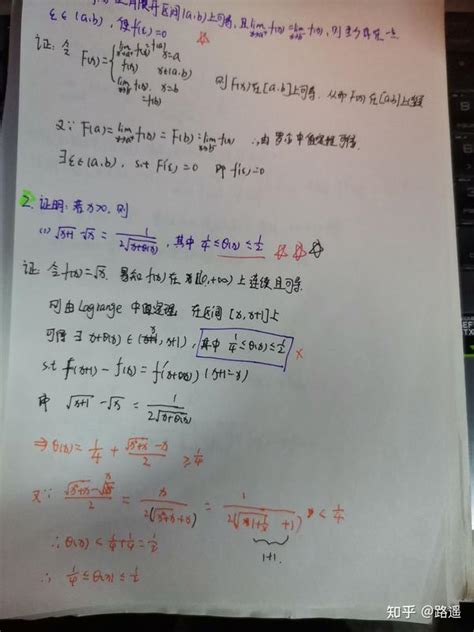 ξ∈(a,b), 使f'(ξ)=0
证: 令 F(x)= { lim f(x)=f(a) x=a
f(x) x∈(a,b)
lim f(x), x=b
则 F(x)在[a,b]上可导, 从而F(x)在[a,b]上连续
又∵ F(a)=lim f(x) = F(b)=lim f(x) ∴由罗尔中值定理可得
∃ξ∈(a,b), s.t F'(ξ)=0 即 f'(ξ)=0
2. 证明: 若x>0, 则
(1) √(x+1) - √x = 1/(2√(x+θ(x))), 其中 1/4 ≤ θ(x) ≤ 1/2
证: 令f(x)=√x. 易知f(x)在 x∈[0,+∞) 上连续且可导.
则由Lagrange 中值定理 在区间 [x,x+1]上
可得 ∃ x+θ(x) ∈ (x, x+1), 其中 1/4 ≤ θ(x) ≤ 1/2 ×
s.t f(x+1) - f(x) = f'(x+θ(x)) (x+1-x)
即 √(x+1) - √x = 1/(2√(x+θ(x)))
⇒ θ(x) = 1/4 + (√(x²+x) - x)/2 ≥ 1/4
又∵ (√(x²+x) - x)/2 = x/(2(√(x²+x)+x)) = 1/(2(√(1+1/x)+1)) < 1/4
1+1
∴ θ(x) < 1/4+1/4 = 1/2
∴ 1/4 ≤ θ(x) ≤ 1/2
知乎 @路遥